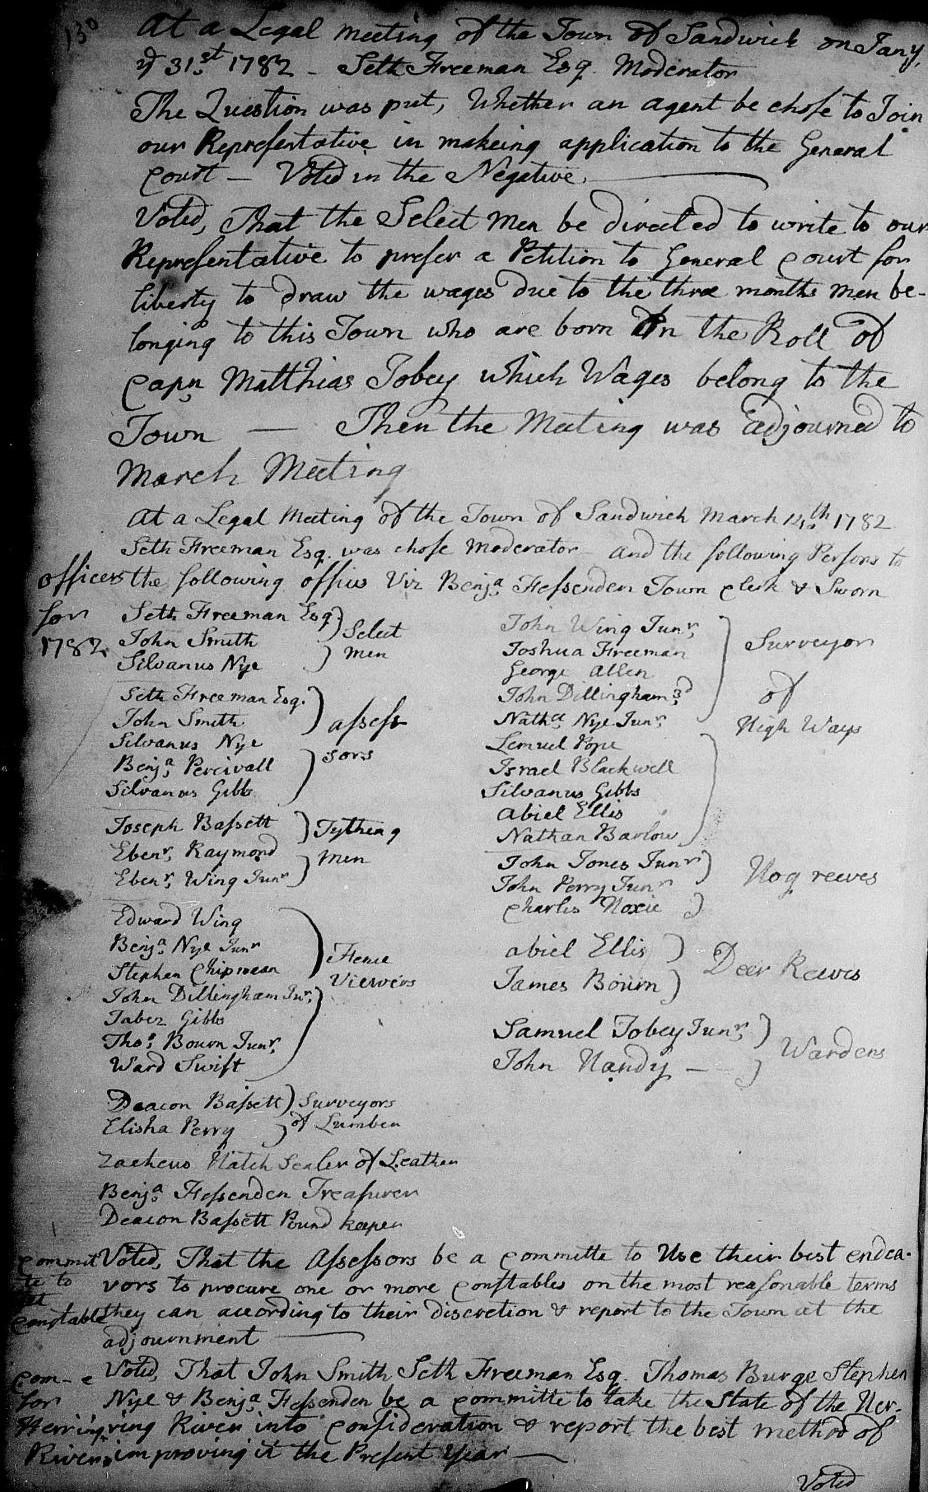 130
At a Legal meeting of the Town of Sandwich on Jany,
ye 31.st 1782 - Seth Freeman Esq. Moderator
The Question was put, Whether an agent be chose to Join
our Representative in makeing application to the General
Court — Voted in the Negative.
Voted, That the Select men be directed to write to our
Representative to prefer a Petition to General Court for
liberty to draw the wages due to the three months men be-
longing to this Town who are born on the Roll of
Capn Matthias Tobey which Wages belong to the
Town — Then the Meeting was adjourned to
March Meeting
At a Legal Meeting of the Town of Sandwich March 14.th 1782
Seth Freeman Esq. was chose Moderator - and the following Persons to
officers the following offices Viz Benja. Fessenden Town Clerk & Sworn
for
1782
Seth Freeman Esq } Select
John Smith
Silvanus Nye } men
Seth Freeman Esq.
John Smith } assess-
Silvanus Nye
Benja. Percivall } sors
Silvanus Gibbs
Joseph Bassett } Tything
Ebenr. Raymond
Ebenr. Wing Junr } men
Edward Wing
Benja. Nye Junr
Stephen Chipman } Fence
John Dillingham Jur. Viewers
Jabez Gibbs
Thos. Bourn Junr.
Ward Swift
Deacon Bassett } Surveyors
Elisha Perry } of Lumber
Zacheus Hatch Sealer of Leather
Benja. Fessenden Treasurer
Deacon Bassett Pound keeper
John Wing Junr.
Joshua Freeman } Surveyor
George Allen
John Dillingham 3d of
Natha. Nye Junr. High Ways
Lemuel Pope
Israel Blackwell
Silvanus Gibbs
Abiel Ellis
Nathan Barlow
John Jones Junr }
John Perry Junr Hog reeves
Charles Hoxie }
Abiel Ellis } Deer Reeves
James Bourn }
Samuel Tobey Junr. } Wardens
John Handy — }
Commit Voted, That the Assessors be a Committe to Use their best endea-
te to vors to procure one or more Constables on the most reasonable terms
Constable they can according to their discretion & report to the Town at the
adjournment
Com-e Voted, That John Smith Seth Freeman Esq. Thomas Burge Stephen
for Nye & Benja. Fessenden be a Committe to take the State of the Her-
Herring ring River into Consideration & report the best method of
River improving it the Present Year —
Voted